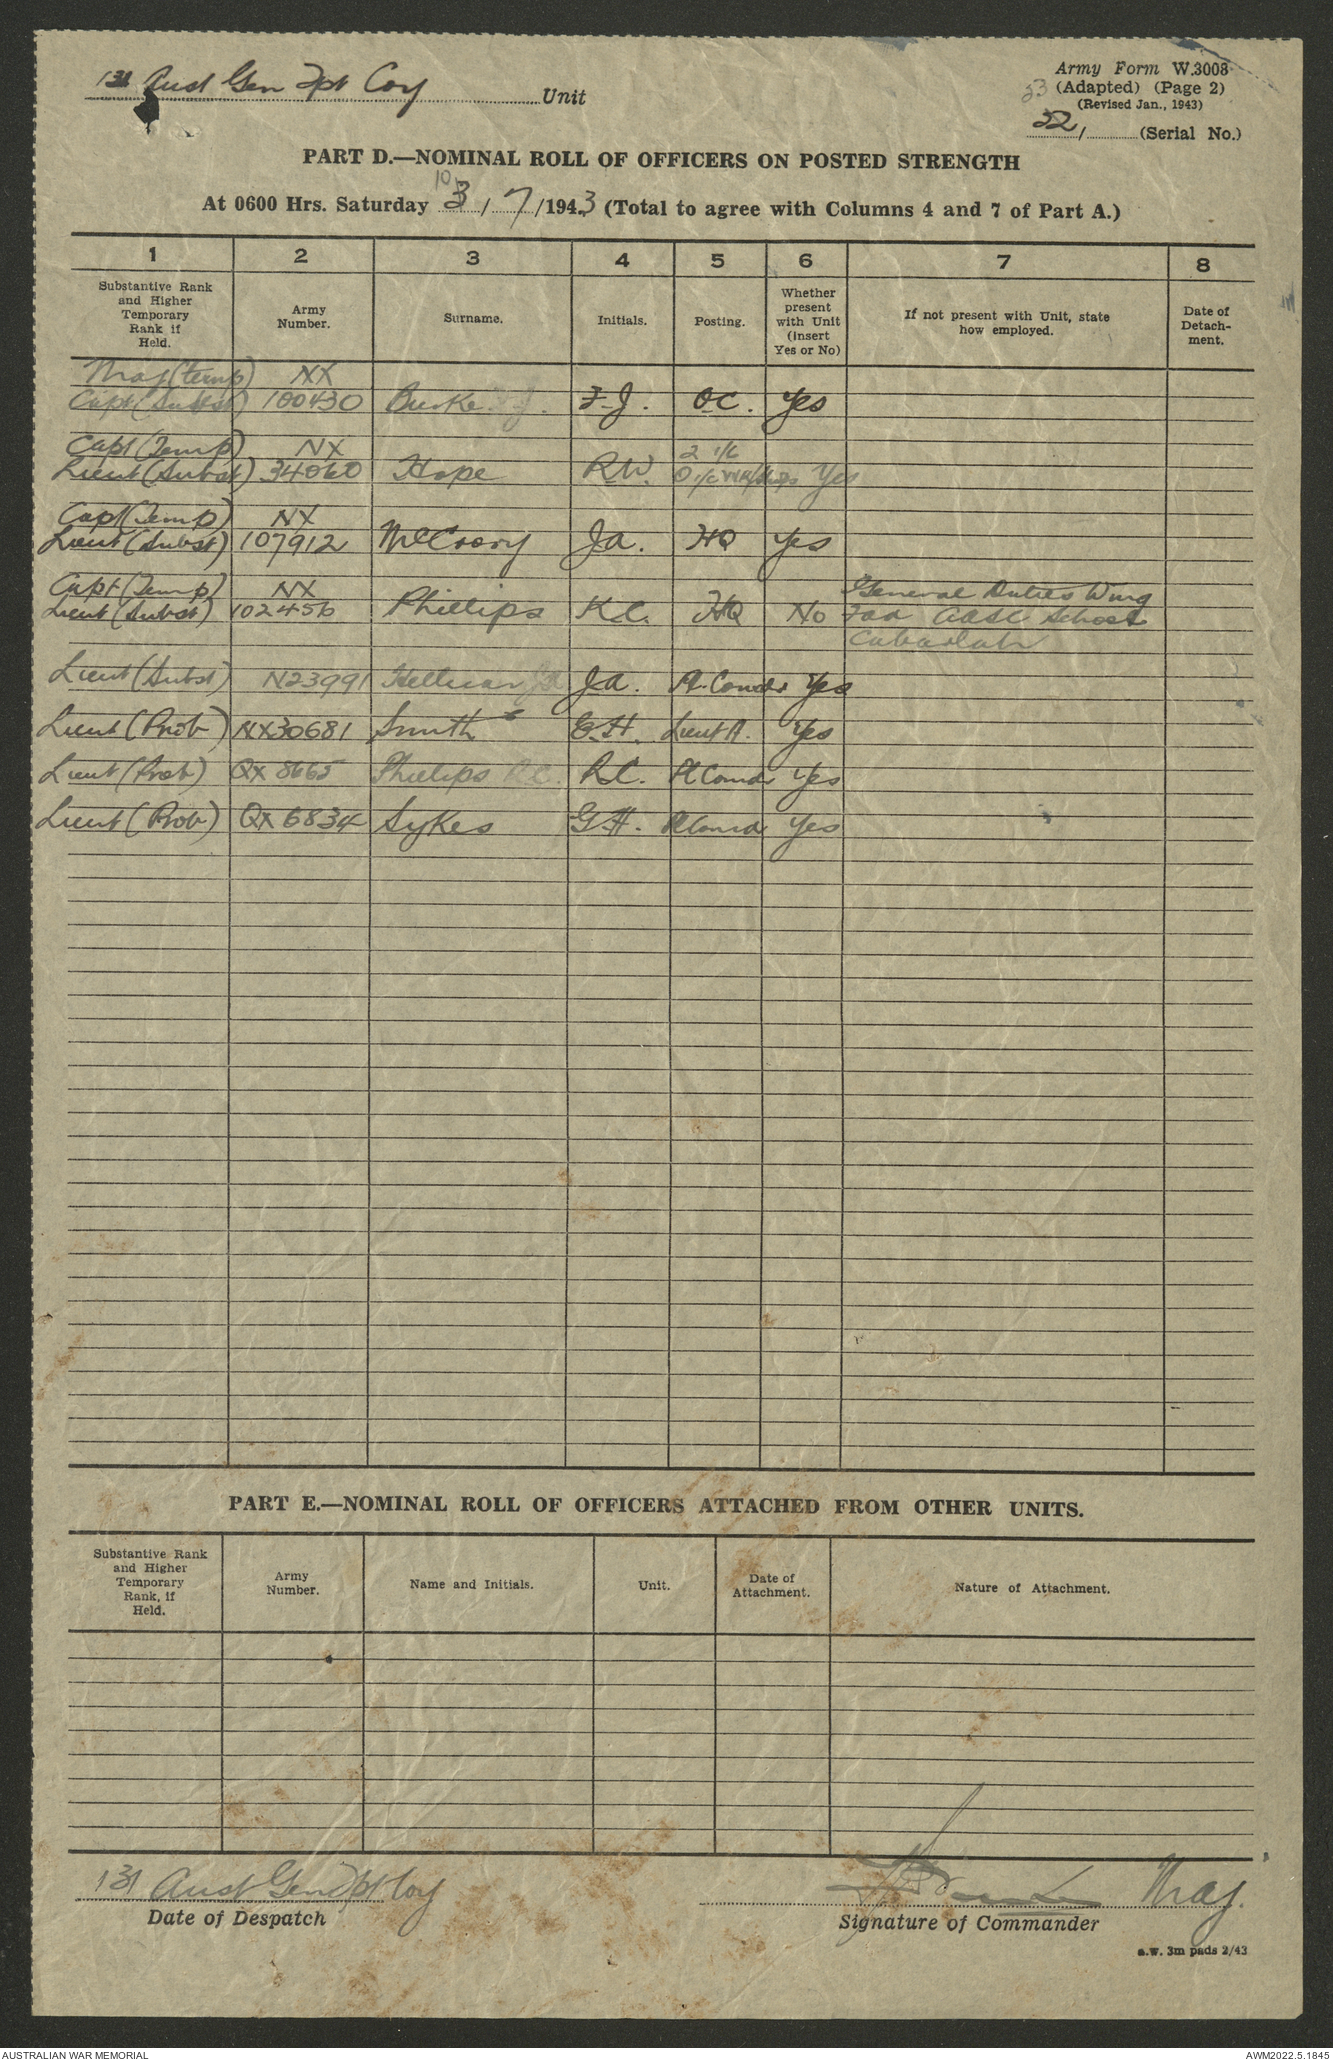 131 Aust Gen Tpt Coy Unit
Army Form W.3008
33 (Adapted) (Page 2)
(Revised Jan., 1943)
32/ (Serial No.)
PART D.—NOMINAL ROLL OF OFFICERS ON POSTED STRENGTH
10
At 0600 Hrs. Saturday 3/7/1943 (Total to agree with Columns 4 and 7 of Part A.)
1 2 3 4 5 6 7 8
Substantive Rank and Higher Temporary Rank if Held. Army Number. Surname. Initials. Posting. Whether present with Unit (Insert Yes or No) If not present with Unit, state how employed. Date of Detachment.
Maj (temp) NX
Capt (Subst) 100430 Burke F.J. F.J. OC. Yes
Capt (Temp) NX 2 i/c
Lieut (Subst) 34060 Hope R.W. O i/c Yes
Capt (Temp) NX
Lieut (Subst) 107912 McCrory J.A. HQ Yes
Capt (Temp) NX General Duties Wing
Lieut (Subst) 102456 Phillips K.C. HQ No AASC School
Cabarlah
Lieut (Subst) N23991 J.A. Pl. Comdr Yes
Lieut (Prob) NX30681 Smith E.H. Lieut A. Yes
Lieut (Prob) QX 8665 Phillips R.C. R.C. Pl Comd Yes
Lieut (Prob) QX 6834 Sykes G.H. Pl Comd Yes
PART E.—NOMINAL ROLL OF OFFICERS ATTACHED FROM OTHER UNITS.
Substantive Rank and Higher Temporary Rank, if Held. Army Number. Name and Initials. Unit. Date of Attachment. Nature of Attachment.
131 Aust Gen Tpt Coy Maj.
Date of Despatch Signature of Commander
a.w. 3m pads 2/43
AUSTRALIAN WAR MEMORIAL AWM2022.5.1845